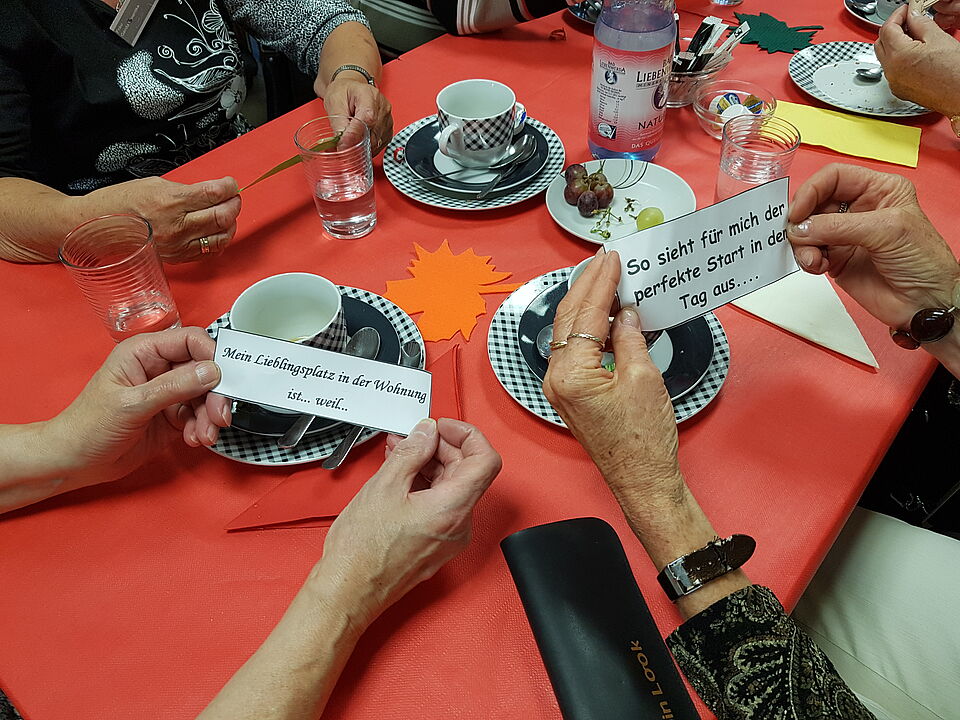 Mein Lieblingsplatz in der Wohnung
ist... weil...
So sieht für mich der
perfekte Start in den
Tag aus....
NATU
in Look